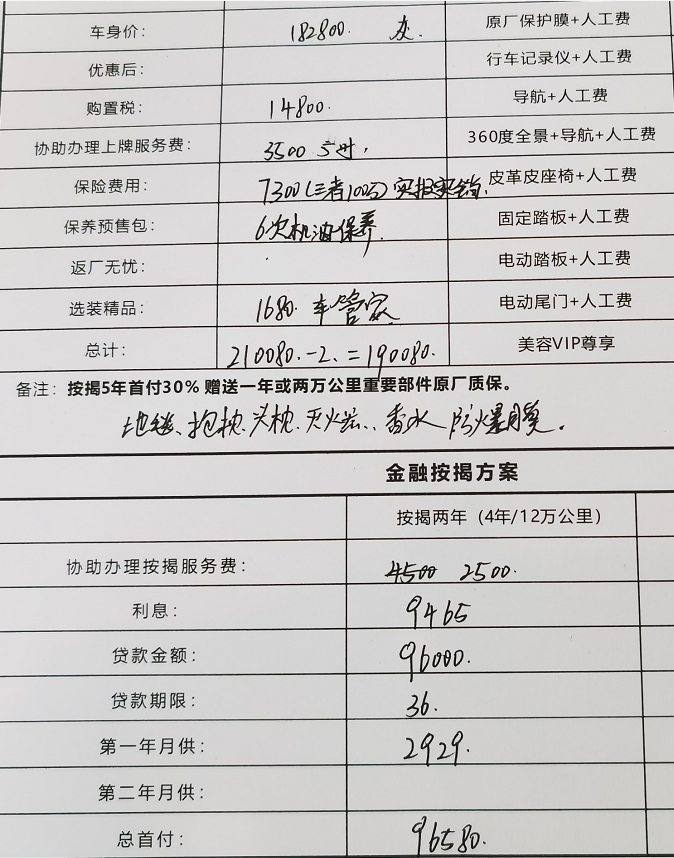 车身价： 182800. 灰. 原厂保护膜+人工费
优惠后： 行车记录仪+人工费
购置税： 14800. 导航+人工费
协助办理上牌服务费： 3500 360度全景+导航+人工费
保险费用： 7300(三者100万)实报实销. 皮革皮座椅+人工费
保养预售包： 6次机油保养. 固定踏板+人工费
返厂无忧： 电动踏板+人工费
选装精品： 1680. 车管家 电动尾门+人工费
总计： 210080.-2.=190080. 美容VIP尊享
备注：按揭5年首付30% 赠送一年或两万公里重要部件原厂质保。
地毯、抱枕、头枕、灭火器、香水 防爆膜。
金融按揭方案
按揭两年（4年/12万公里）
协助办理按揭服务费： 4500 2500.
利息： 9465
贷款金额： 96000.
贷款期限： 36.
第一年月供： 2929.
第二年月供：
总首付： 96580.